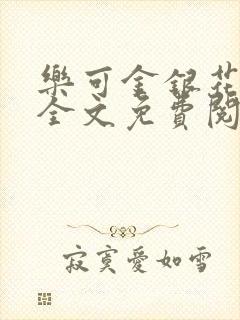 樂可金銀花
全文免費閱
寂寞愛如雪